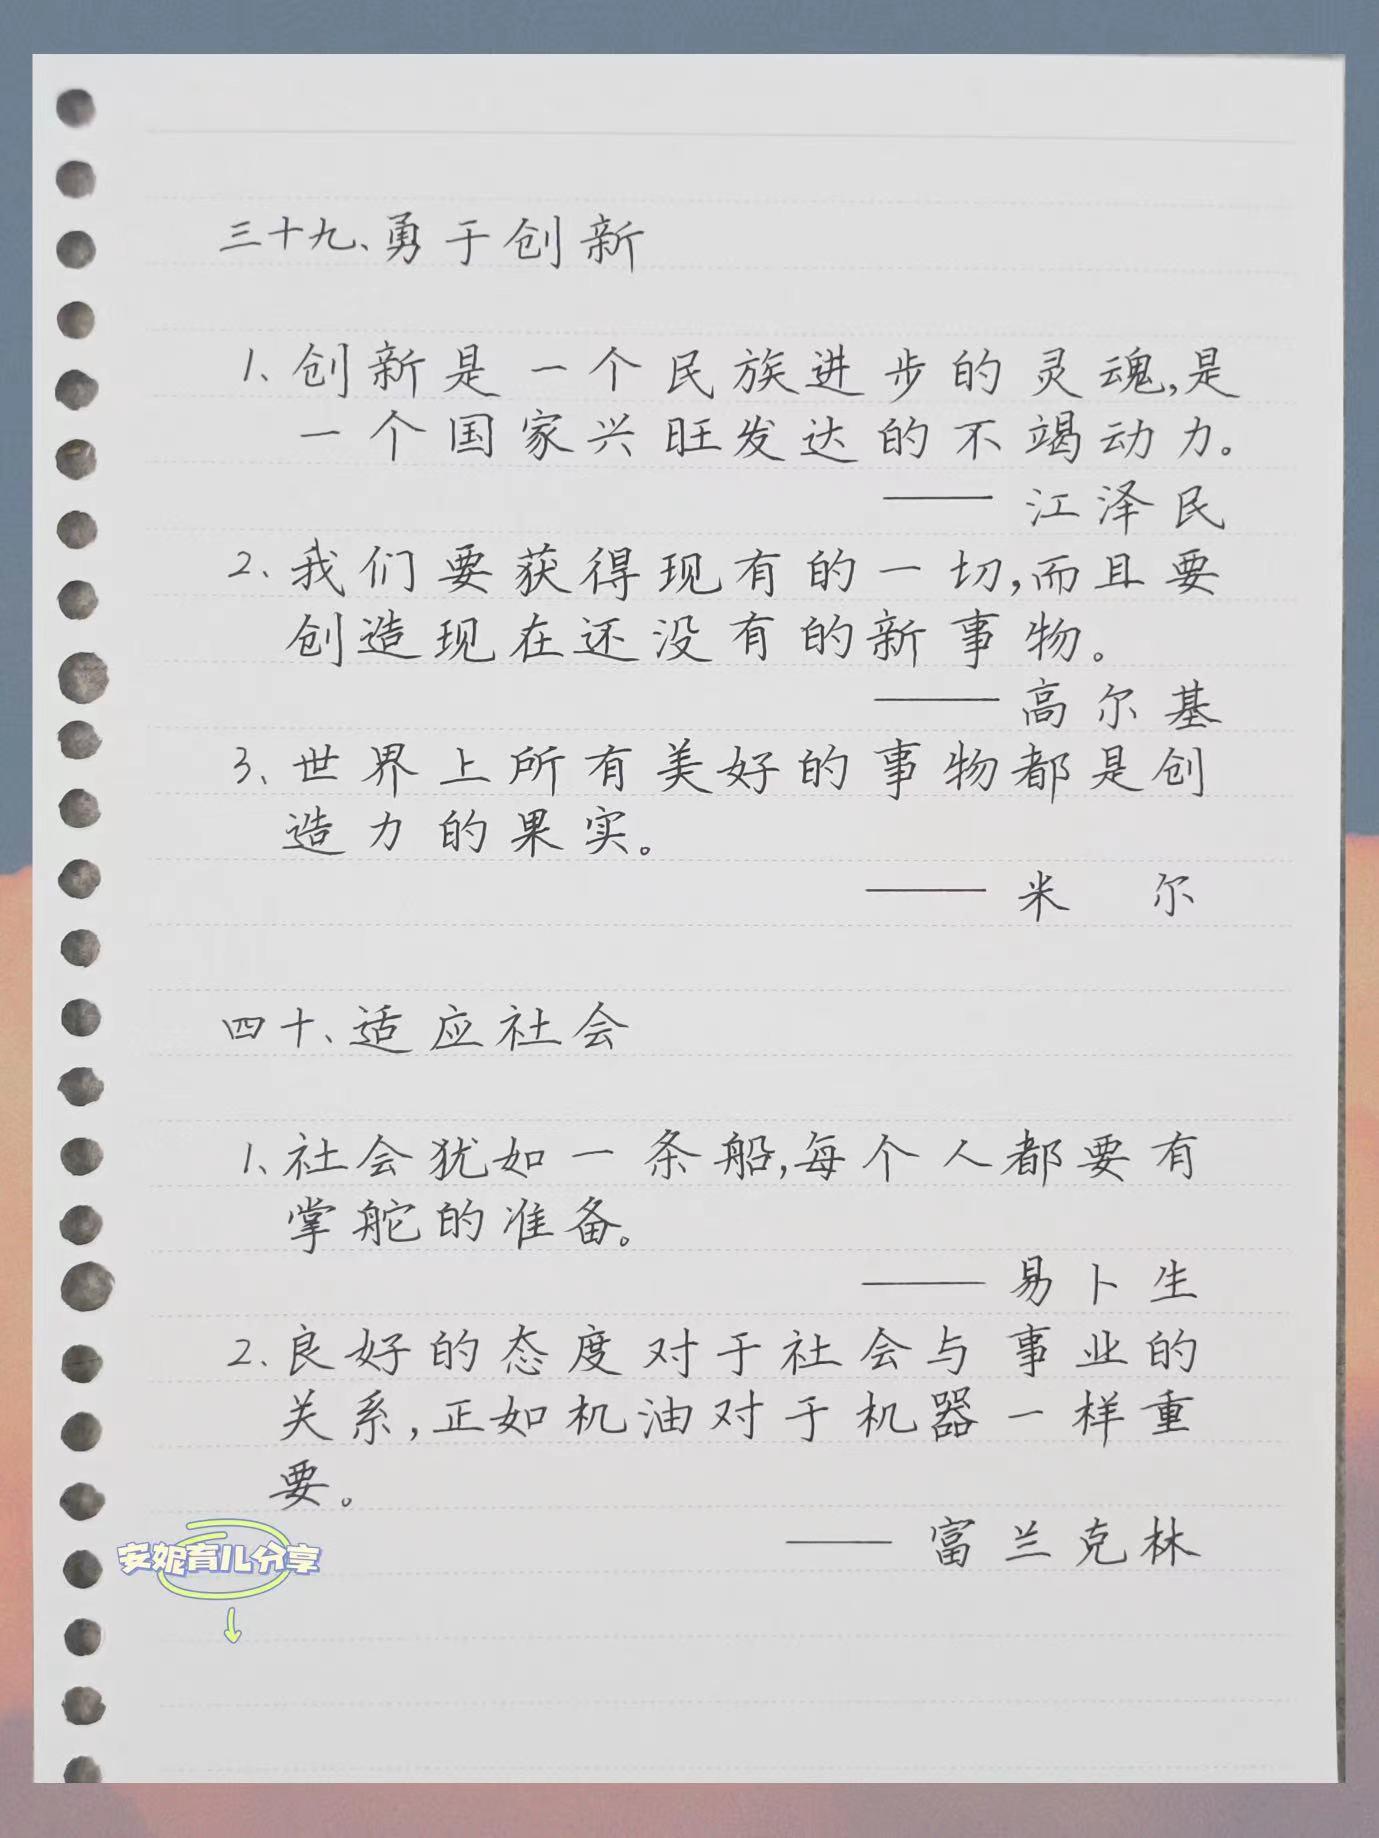 三十九、勇于创新
1、创新是一个民族进步的灵魂,是
一个国家兴旺发达的不竭动力。
—— 江泽民
2、我们要获得现有的一切,而且要
创造现在还没有的新事物。
—— 高尔基
3、世界上所有美好的事物都是创
造力的果实。
—— 米 尔
四十、适应社会
1、社会犹如一条船,每个人都要有
掌舵的准备。
—— 易卜生
2、良好的态度对于社会与事业的
关系,正如机油对于机器一样重
要。
—— 富兰克林
安妮育儿分享